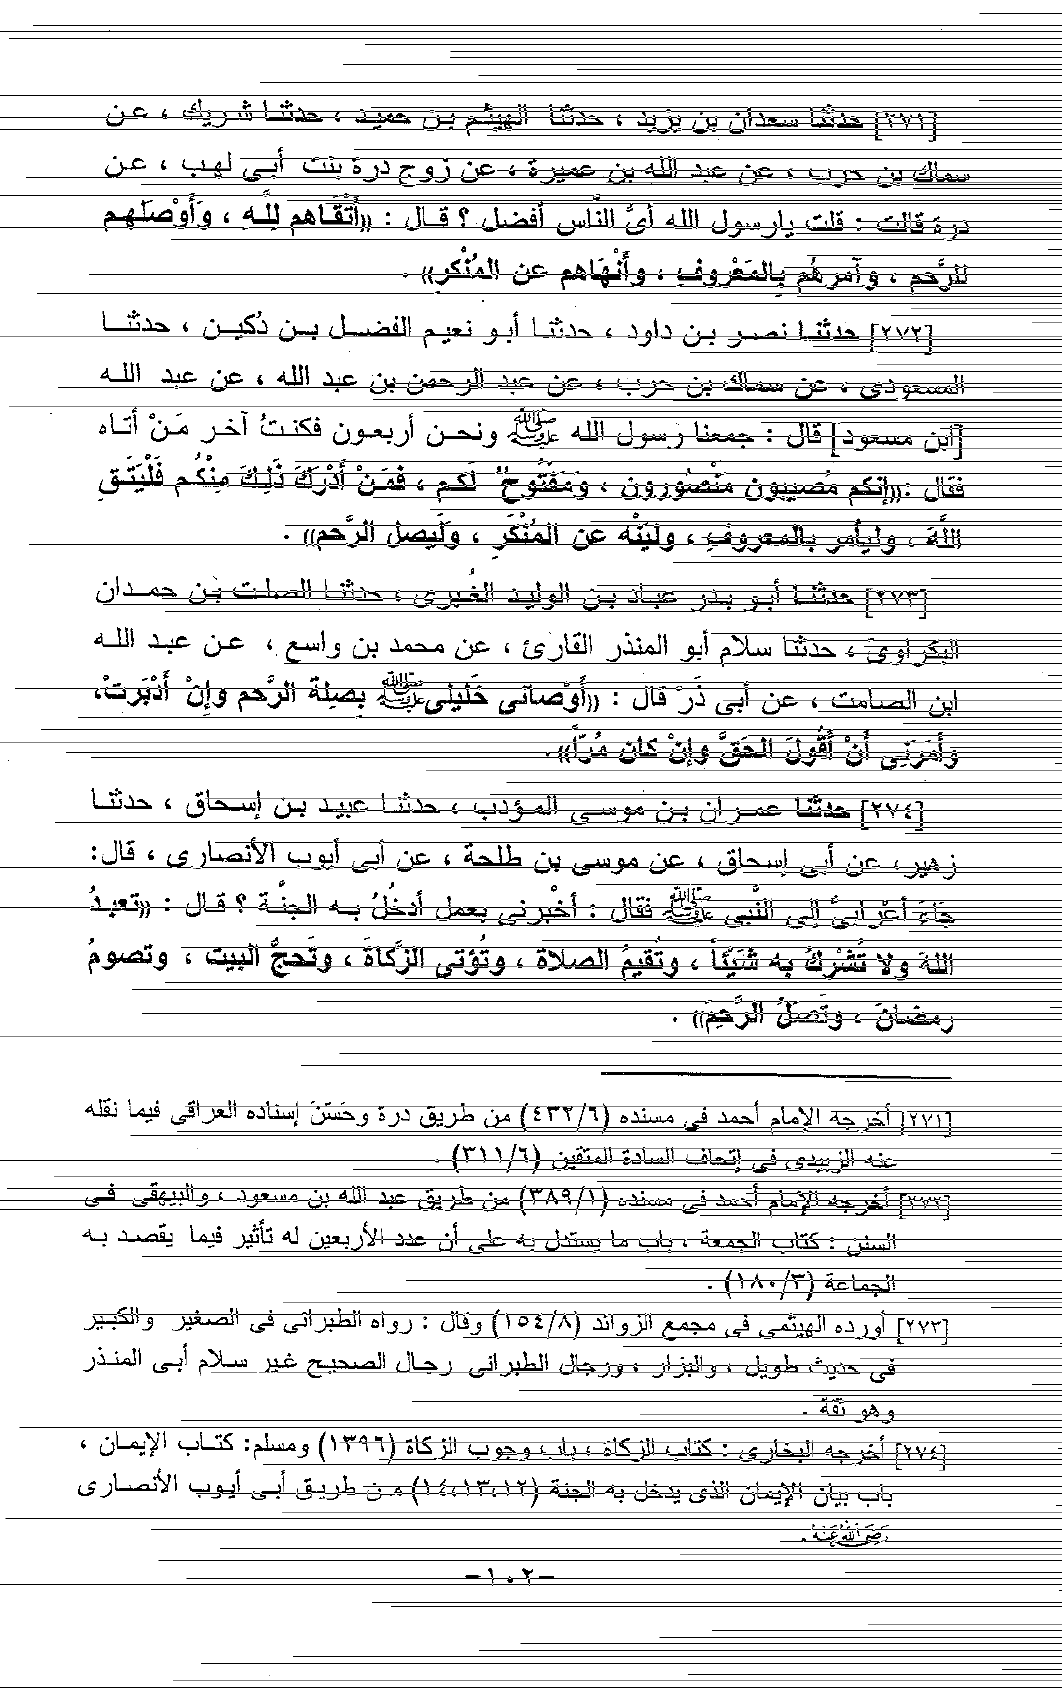 [٢٧١] حدثنا سعدان بن يزيد ، حدثنا الهيثم بن حميد ، حدثنا شريك ، عن
سماك بن حرب ، عن عبد الله بن عميرة ، عن زوج درة بنت أبى لهب ، عن
درة قالت : قلت يارسول الله أىُّ النَّاس أفضل ؟ قال : ((أَتْقَاهم لِلَّهِ ، وَأَوْصَلهم
للرَّحم ، وآمرهُم بِالمَعْروفِ ، وأَنْهَاهم عن المُنْكَرِ)) .
[٢٧٢] حدثنا نصر بن داود ، حدثنا أبو نعيم الفضل بن دُكين ، حدثنا
المسعودى ، عن سماك بن حرب ، عن عبد الرحمن بن عبد الله ، عن عبد الله
[ابن مسعود] قال : جمعنا رسول الله ﷺ ونحن أربعون فكنتُ آخر مَنْ أتاه
فقال :((إنكم مُصيبون مَنْصُورون ، وَمَفْتُوحٌ لَكم ، فَمَنْ أَدْرَكَ ذَلِكَ مِنْكُم فَلْيَتَقِ
اللَّهَ ، وليأمر بالمعروفِ ، ولْيَنْهَ عن المُنْكَرِ ، وَلَيصل الرَّحم)) .
[٢٧٣] حدثنا أبو بدر عباد بن الوليد الغُبرى ، حدثنا الصلت بن حمدان
البكراوى ، حدثنا سلام أبو المنذر القارئ ، عن محمد بن واسع ، عن عبد الله
ابن الصامت ، عن أبى ذَرّ قال : ((أَوْصانى خَليلى ﷺ بِصِلَةِ الرَّحم وإِنْ أَدْبَرتْ،
وَأَمَرَنِى أَنْ أَقُولَ الحَقَّ وإنْ كان مُرّاً)).
[٢٧٤] حدثنا عمران بن موسى المؤدب ، حدثنا عبيد بن إسحاق ، حدثنا
زهير، عن أبى إسحاق ، عن موسى بن طلحة ، عن أبى أيوب الأنصارى ، قال:
جَاءَ أعْرَابىُّ إلى النَّبى ﷺ فقال : أخْبِرنى بعمل أدخُلُ به الجنَّة ؟ قال : ((تعبدُ
اللهَ ولا تُشْرِكُ به شَيْئاً ، وتُقيمُ الصلاة ، وتُؤتى الزَّكاةَ ، وتَحجُّ البيت ، وتصومُ
رمضانَ ، وتَصَلُ الرَّحِمَ)) .
[٢٧١] أخرجه الإمام أحمد فى مسنده (٤٣٢/٦) من طريق درة وحَسَّنَ إسناده العراقى فيما نقله
عنه الزبيدى فى إتحاف السادة المتقين (٣١١/٦) .
[٢٧٢] أخرجه الإمام أحمد فى مسنده (٣٨٩/١) من طريق عبد الله بن مسعود ، والبيهقى فى
السنن : كتاب الجمعة ، باب ما يستدل به على أن عدد الأربعين له تأثير فيما يقصد به
الجماعة (١٨٠/٣) .
[٢٧٣] أورده الهيثمى فى مجمع الزوائد (١٥٤/٨) وقال : رواه الطبرانى فى الصغير والكبير
فى حديث طويل ، والبزار ، ورجال الطبرانى رجال الصحيح غير سلام أبى المنذر
وهو ثقة .
[٢٧٤] أخرجه البخارى : كتاب الزكاة ، باب وجوب الزكاة (١٣٩٦) ومسلم: كتاب الإيمان ،
باب بيان الإيمان الذى يدخل به الجنة (١٤،١٣،١٢) من طريق أبى أيوب الأنصارى
رَضِيَ اللهُ عَنْهُ.
-١٠٢-